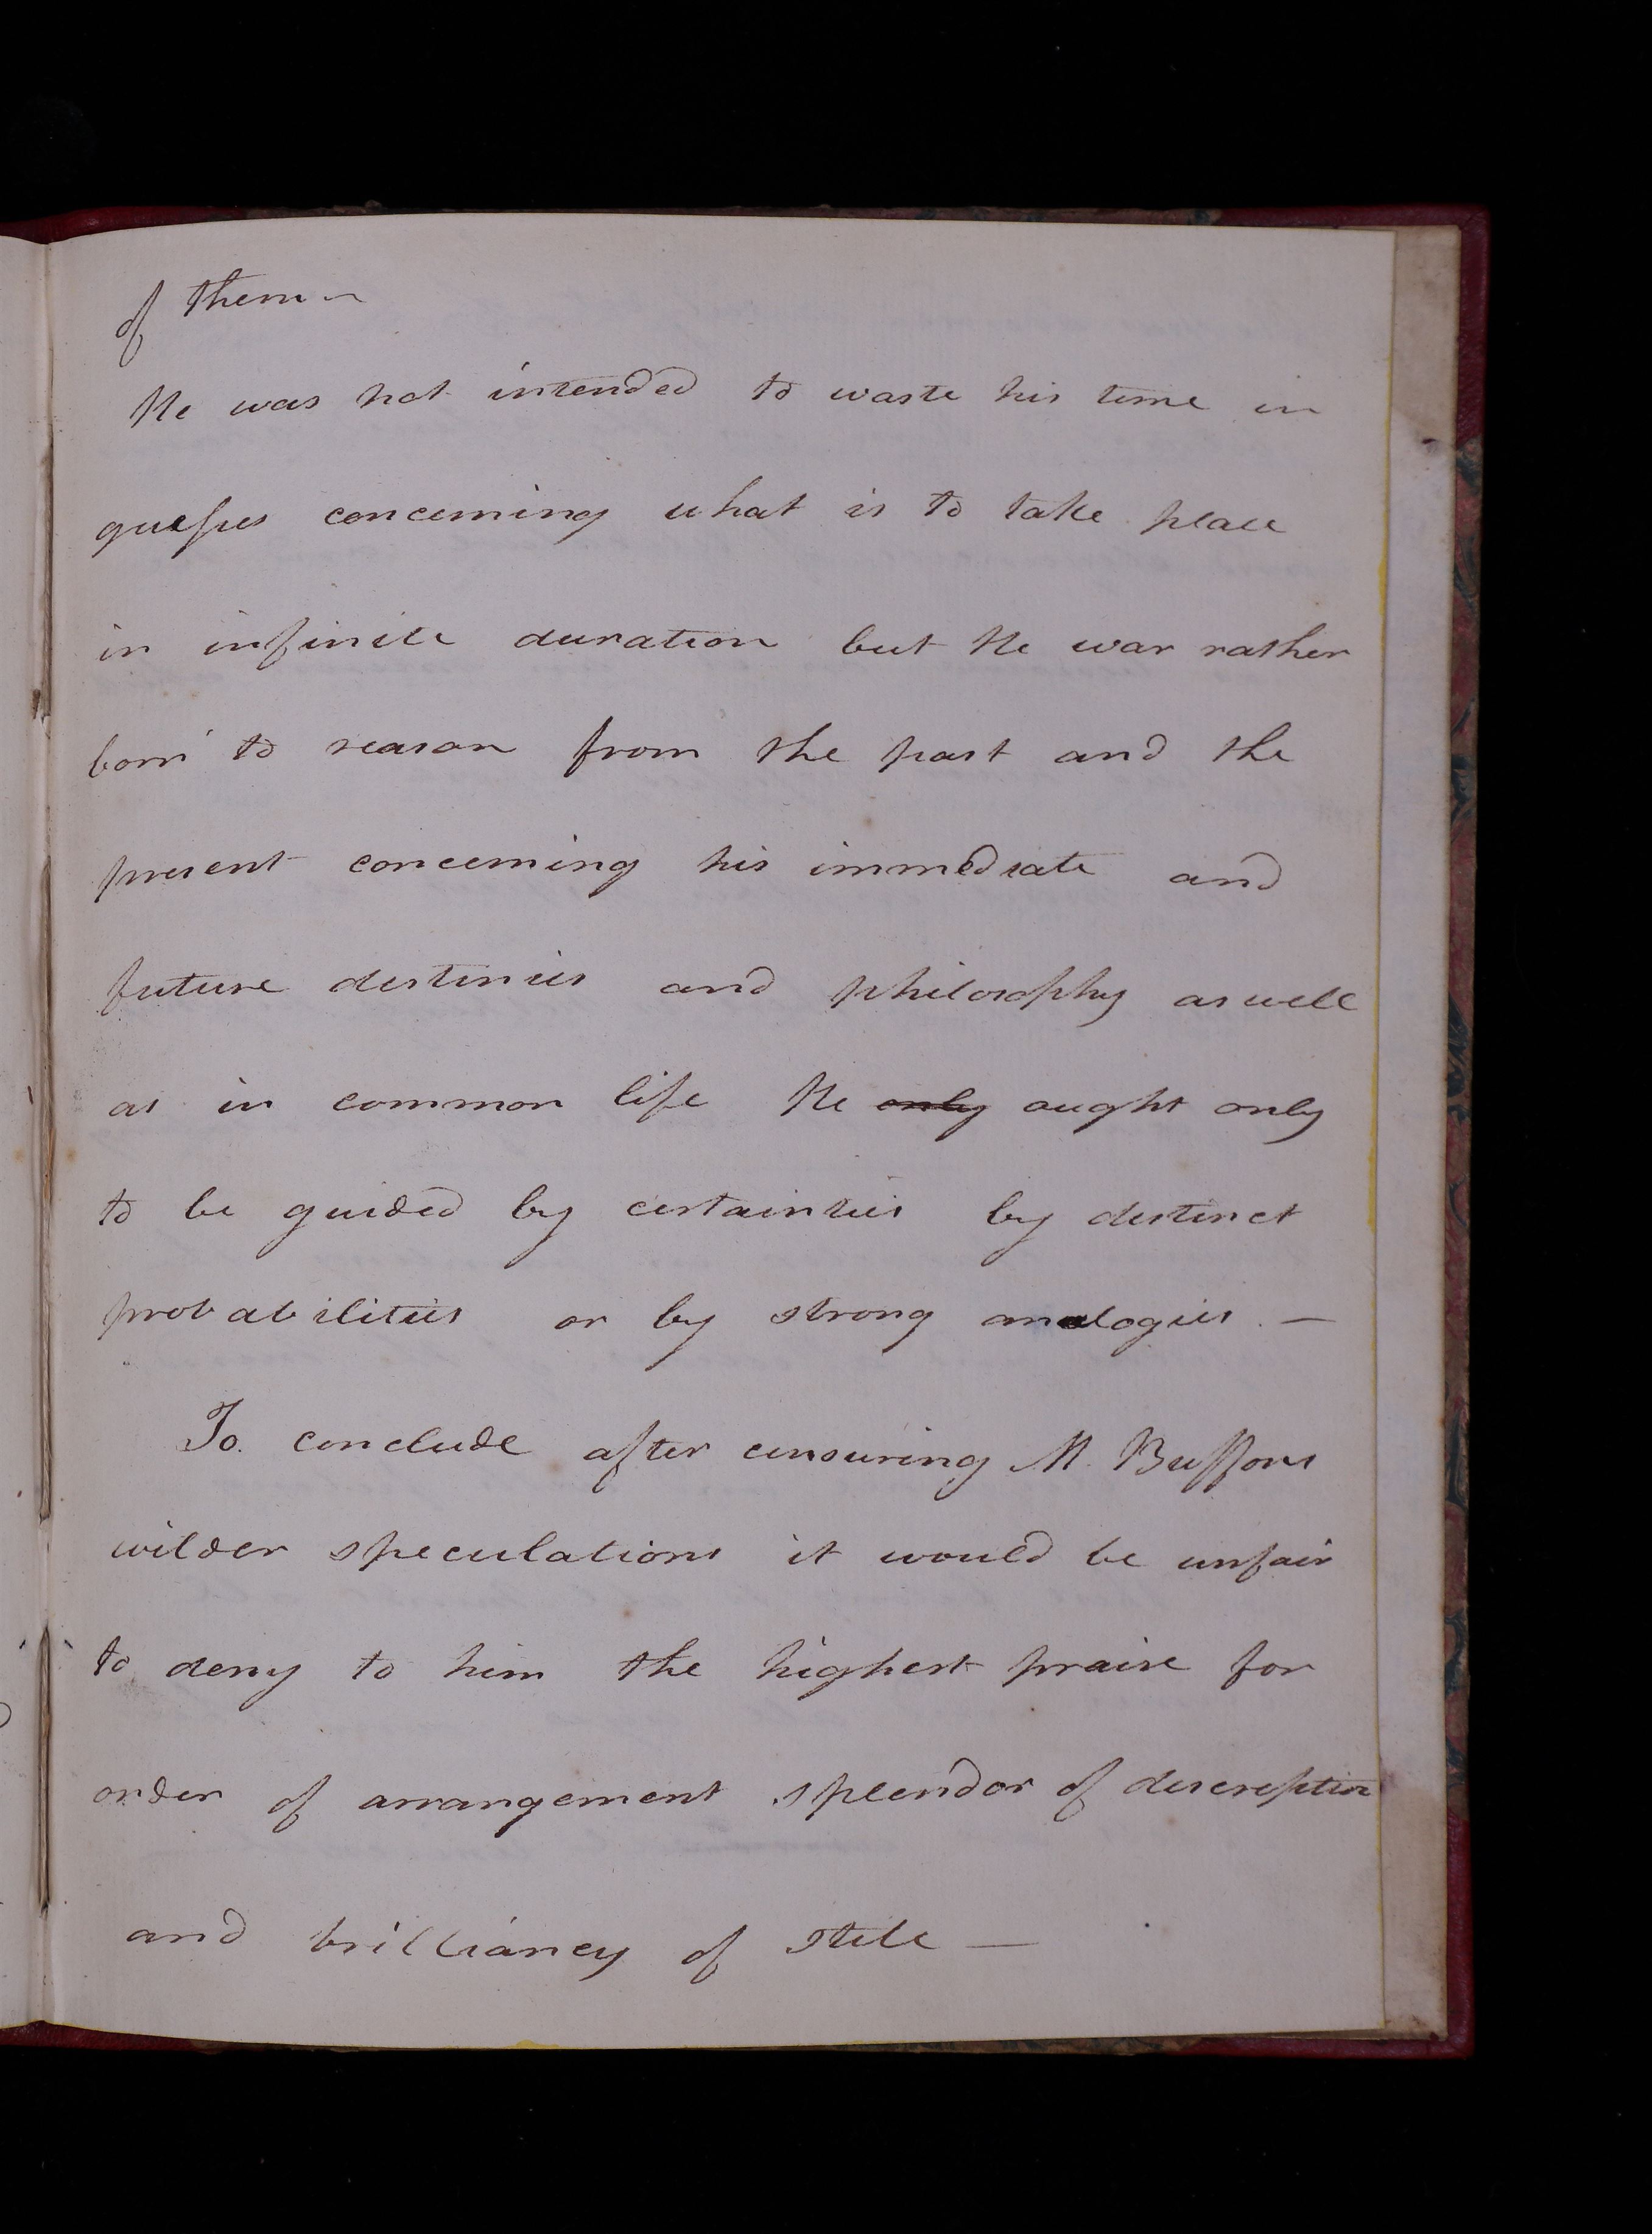 of them –
He was not intended to waste his time in
guesses concerning what is to take place
in infinite duration but He was rather
born to reason from the past and the
present concerning his immediate and
future destinies and philosophy as well
as in common life He only ought only
to be guided by certainties by distinct
probabilities or by strong analogies. —
To conclude after censuring M. Buffons
wilder speculations it would be unfair
to deny to him the highest praise for
order of arrangement splendor of description
and brilliancy of stile —